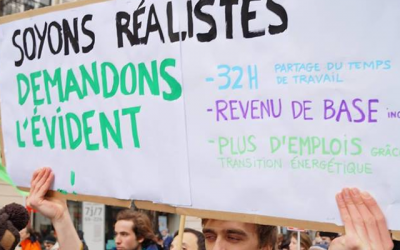 SOYONS RÉALISTES
DEMANDONS
L'ÉVIDENT
!
-32H PARTAGE DU TEMPS
DE TRAVAIL
-REVENU DE BASE
-PLUS D'EMPLOIS GRÂC
TRANSITION ÉNERGÉTIQUE
7j/7